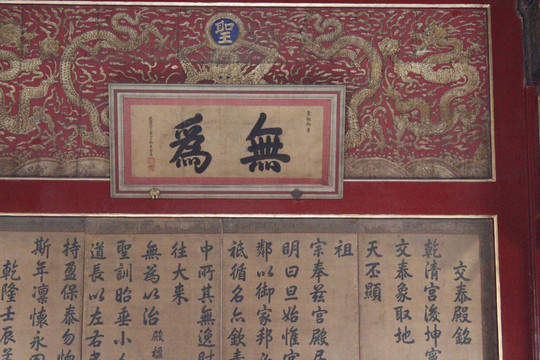 聖
無爲
交泰殿銘
乾清宮後坤
交泰象取地
天丕顯
祖
宗奉茲宮殿
明曰旦始惟
鄰以御家邦
祗循名
中所其無逸財
往大來
無為以治
聖訓昭垂小人
道長以左右
持盈保泰勿
斯年凜懷永
乾隆壬辰